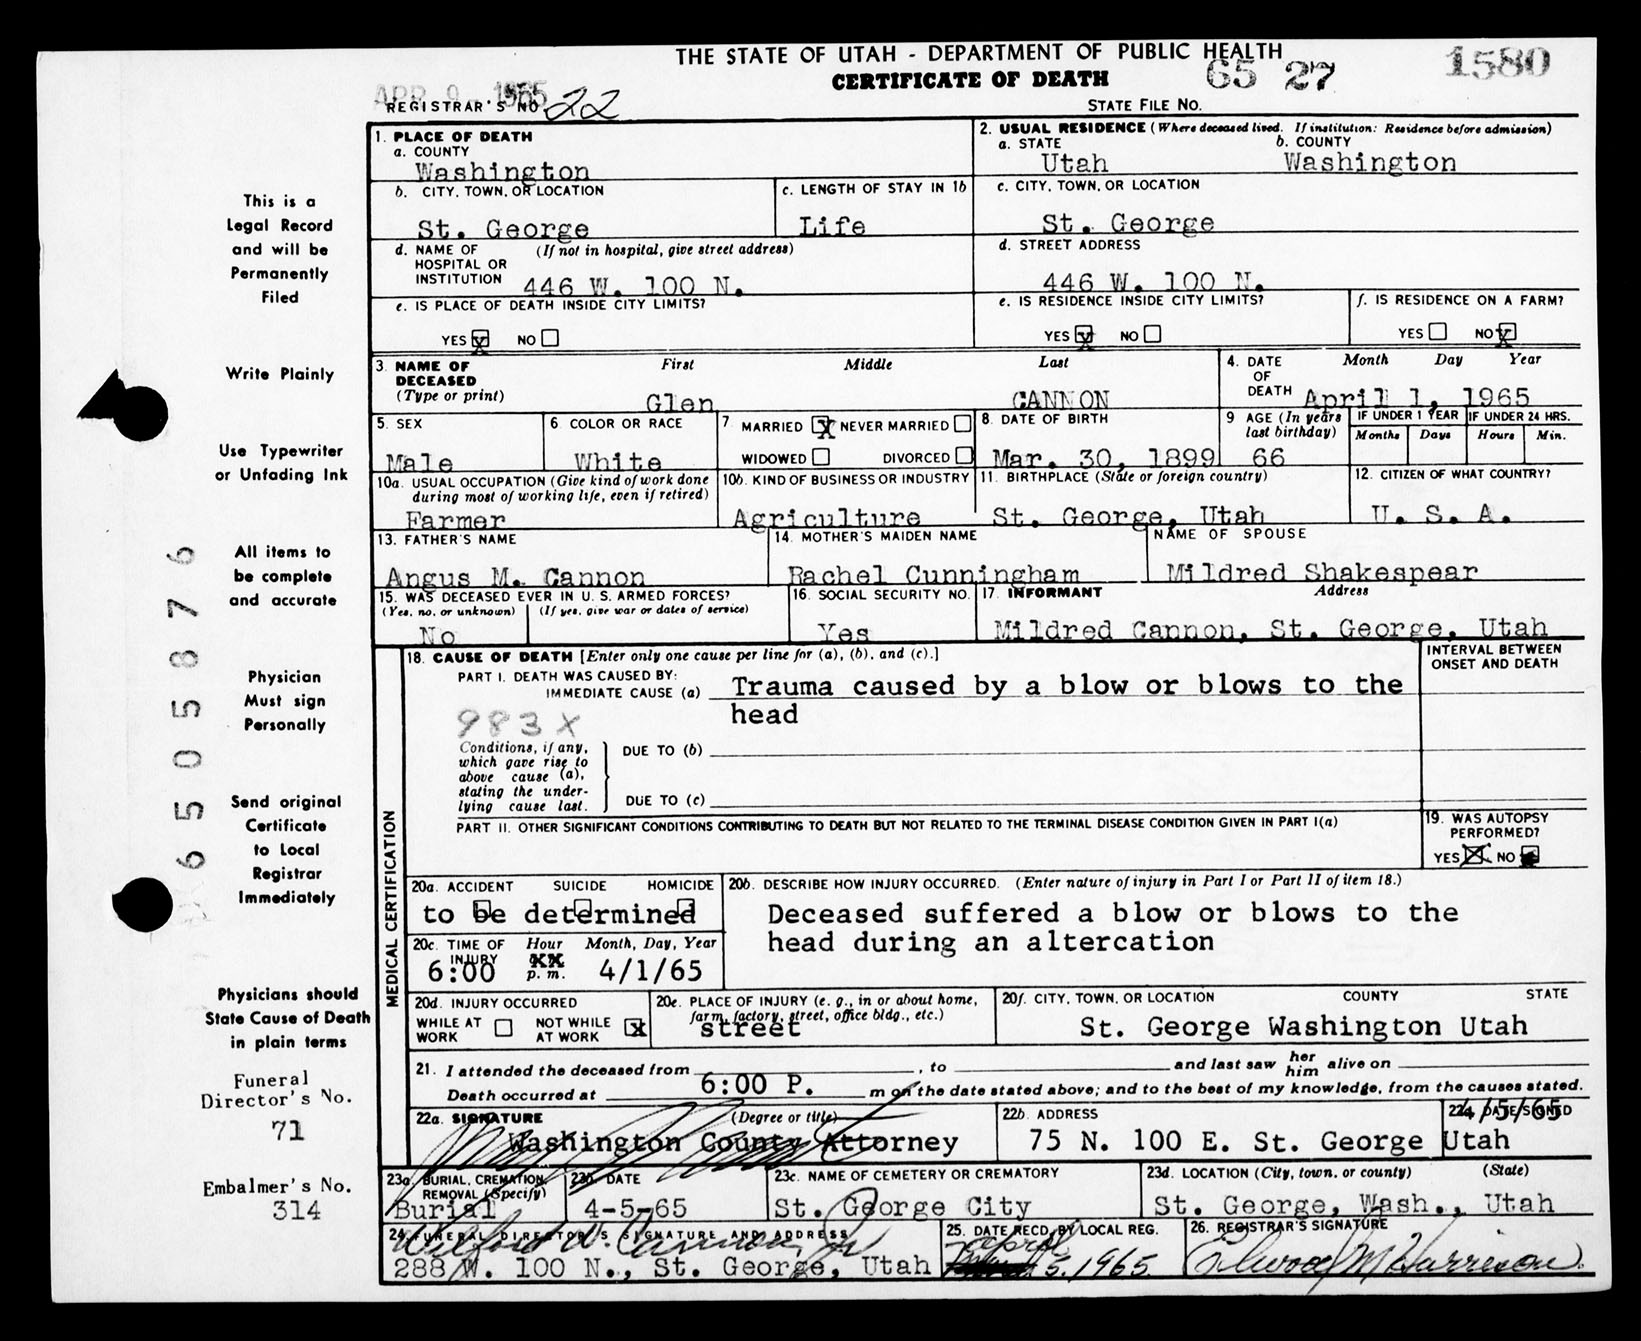 THE STATE OF UTAH - DEPARTMENT OF PUBLIC HEALTH
CERTIFICATE OF DEATH
65 27
1580
APR 9 1965
REGISTRAR'S NO. 22
STATE FILE NO.
This is a
Legal Record
and will be
Permanently
Filed
Write Plainly
Use Typewriter
or Unfading Ink
All items to
be complete
and accurate
Physician
Must sign
Personally
Send original
Certificate
to Local
Registrar
Immediately
Physicians should
State Cause of Death
in plain terms
Funeral
Director's No.
71
Embalmer's No.
314
6505876
1. PLACE OF DEATH
a. COUNTY
Washington
2. USUAL RESIDENCE (Where deceased lived. If institution: Residence before admission)
a. STATE b. COUNTY
Utah Washington
b. CITY, TOWN, OR LOCATION
St. George
c. LENGTH OF STAY IN 1b
Life
c. CITY, TOWN, OR LOCATION
St. George
d. NAME OF (If not in hospital, give street address)
HOSPITAL OR
INSTITUTION 446 W. 100 N.
d. STREET ADDRESS
446 W. 100 N.
e. IS PLACE OF DEATH INSIDE CITY LIMITS?
YES X NO
e. IS RESIDENCE INSIDE CITY LIMITS?
YES X NO
f. IS RESIDENCE ON A FARM?
YES NO X
3. NAME OF First Middle Last
DECEASED
(Type or print) Glen CANNON
4. DATE Month Day Year
OF
DEATH April 1, 1965
5. SEX
Male
6. COLOR OR RACE
White
7. MARRIED X NEVER MARRIED
WIDOWED DIVORCED
8. DATE OF BIRTH
Mar. 30, 1899
9 AGE (In years
last birthday)
66
IF UNDER 1 YEAR IF UNDER 24 HRS.
Months Days Hours Min.
10a. USUAL OCCUPATION (Give kind of work done
during most of working life, even if retired)
Farmer
10b. KIND OF BUSINESS OR INDUSTRY
Agriculture
11. BIRTHPLACE (State or foreign country)
St. George, Utah
12. CITIZEN OF WHAT COUNTRY?
U. S. A.
13. FATHER'S NAME
Angus M. Cannon
14. MOTHER'S MAIDEN NAME
Rachel Cunningham
NAME OF SPOUSE
Mildred Shakespear
15. WAS DECEASED EVER IN U. S. ARMED FORCES?
(Yes, no, or unknown) (If yes, give war or dates of service)
No
16. SOCIAL SECURITY NO.
Yes
17. INFORMANT Address
Mildred Cannon, St. George, Utah
MEDICAL CERTIFICATION
18. CAUSE OF DEATH [Enter only one cause per line for (a), (b), and (c).]
INTERVAL BETWEEN
ONSET AND DEATH
PART I. DEATH WAS CAUSED BY:
IMMEDIATE CAUSE (a) Trauma caused by a blow or blows to the
head
983X
Conditions, if any,
which gave rise to
above cause (a),
stating the under-
lying cause last.
DUE TO (b)
DUE TO (c)
PART II. OTHER SIGNIFICANT CONDITIONS CONTRIBUTING TO DEATH BUT NOT RELATED TO THE TERMINAL DISEASE CONDITION GIVEN IN PART I(a)
19. WAS AUTOPSY
PERFORMED?
YES X NO
20a. ACCIDENT SUICIDE HOMICIDE
to be determined
20b. DESCRIBE HOW INJURY OCCURRED. (Enter nature of injury in Part I or Part II of item 18.)
Deceased suffered a blow or blows to the
head during an altercation
20c. TIME OF Hour Month, Day, Year
INJURY XX
6:00 p. m. 4/1/65
20d. INJURY OCCURRED
WHILE AT NOT WHILE X
WORK AT WORK
20e. PLACE OF INJURY (e. g., in or about home,
farm, factory, street, office bldg., etc.)
street
20f. CITY, TOWN, OR LOCATION COUNTY STATE
St. George Washington Utah
21. I attended the deceased from , to and last saw her
him alive on
Death occurred at 6:00 P. m on the date stated above; and to the best of my knowledge, from the causes stated.
22a. SIGNATURE (Degree or title)
Washington County Attorney
22b. ADDRESS
75 N. 100 E. St. George Utah
22c. DATE SIGNED
4/5/65
23a. BURIAL, CREMATION,
REMOVAL (Specify)
Burial
23b. DATE
4-5-65
23c. NAME OF CEMETERY OR CREMATORY
St. George City
23d. LOCATION (City, town, or county) (State)
St. George, Wash., Utah
24. FUNERAL DIRECTOR'S SIGNATURE AND ADDRESS
Wilford W. Cannon, Jr
288 W. 100 N., St. George, Utah
25. DATE RECD. BY LOCAL REG.
April
5, 1965
26. REGISTRAR'S SIGNATURE
Elwood M Harrison